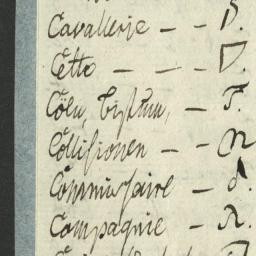 Cavallerie – – D.
Cetto – – – D.
Cöln, Bistum, – F.
Collisionen – – M
Commissaire – d.
Compagnie – R.